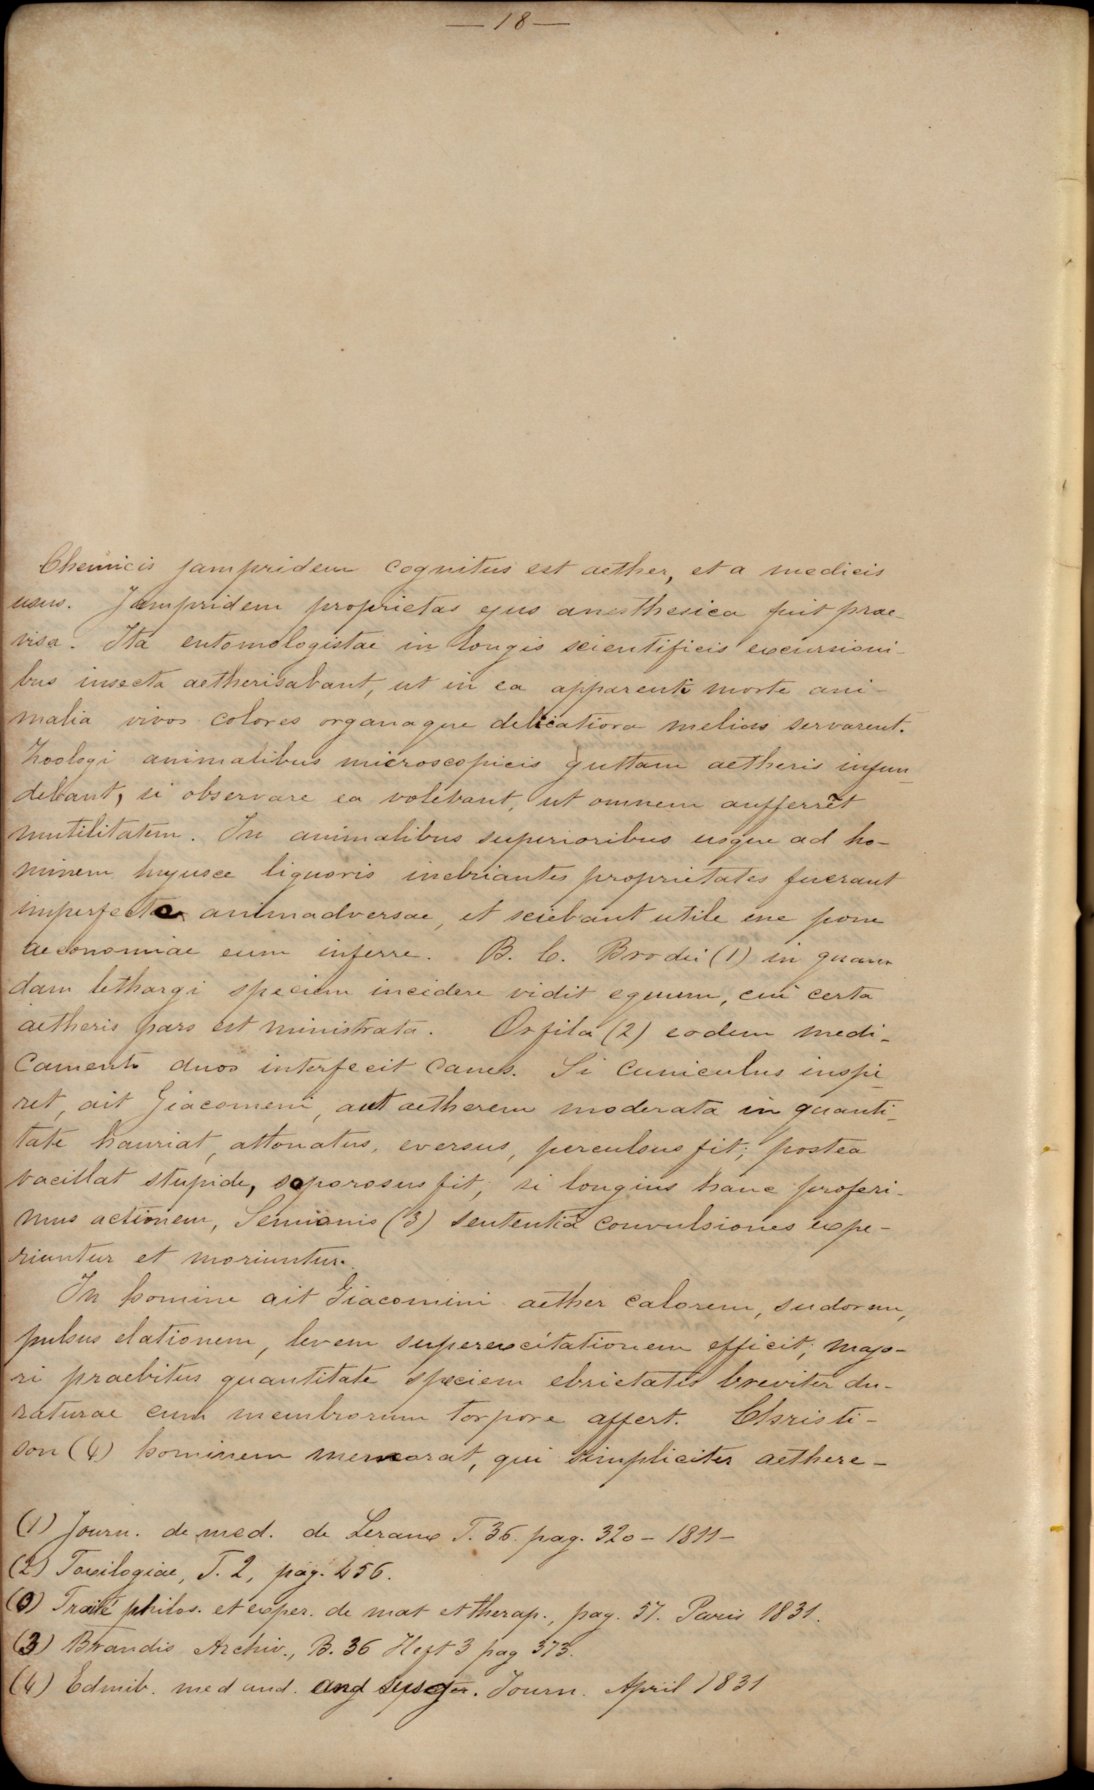 — 18 —
Chemicis jampridem cognitus est aether, et a medicis
usus. Jampridem proprietas ejus anesthesica fuit prae-
visa. Ita entomologistae in longis scientificis excursioni-
bus insecta aetherisabant, ut in ea apparenti morte ani-
malia vivos colores organaque delicatiora melius servarent.
Zoologi animalibus microscopicis guttam aetheris infun-
debant, si observare ea volebant, ut omnem aufferret
mutilitatem. In animalibus superioribus usque ad ho-
minem hujusce liquoris inebriantes proprietates fuerant
imperfecte animadversae, et sciebant utile
aeconomiae eum inferre. B. C. Brodii (1) in quam
dam lethargi speciem incidere vidit equum, cui certa
aetheris pars est ministrata. Orfila (2) eodem medi-
camento duos interfecit canes. Si cuniculus inspi-
ret, ait Giacomeni, aut aetherem moderata in quanti-
tate hauriat, attonatus, eversus, perculsus fit; postea
vacillat stupide, soporosus fit; si longius hanc proferi-
mus actionem, (3) sententiâ convulsiones expe-
riuntur et moriuntur.
In homine ait Giacomini aether calorem, sudorem,
pulsus elationem, levem superexcitationem efficit; majo-
ri praebitus quantitate speciem ebrietatis breviter du-
raturae cum membrorum torpore affert. Christi-
son (4) hominem memorat, qui simpliciter aethere-
(1) Journ. de med. de Leraux T. 36. pag. 320 – 1811 –
(2) Toxilogiae, T. 2, pag. 456.
(3) Traité philos. et exper. de mat et therap., pag. 57. Paris 1831.
(3) Brandis Archiv., B. 36 Heft 3 pag 373.
(4) Edmib. med and. and Journ. April 1831